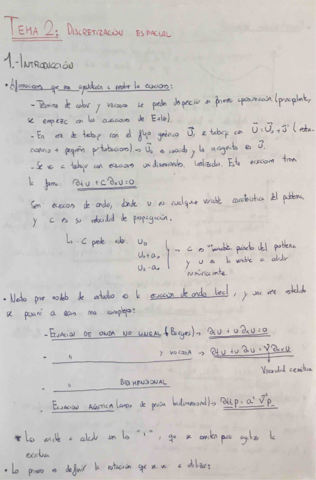 TEMA 2: DISCRETIZACIÓN ESPACIAL
1.- INTRODUCCIÓN
que nos a resolver la ecuaciones:
- Términos de calor y viscosos se pueden despreciar en primera aproximación (principalmente,
se empieza con las ecuaciones de Euler).
- En vez de trabajar con el flujo genérico U, se trabaja con U = U₀ +
+ pequeñas perturbaciones) → U₀ es conocido y la incógnita es
- Se va a trabajar con ecuaciones unidimensionales, linealizadas. Estas ecuaciones tienen
la forma: ∂tU + C∂xU = 0
Son ecuaciones de ondas, donde u es cualquier variable característica del problema
y c es su velocidad de propagación.
La C puede valer: U₀
U₀ + a₀
U₀ - a₀
→ C es variable del problema
y u es la variable a calcular
numéricamente
• Nuestro primer modelo de estudio es la ecuación de onda lineal, y una vez
se pasará a casos más complejos:
- ECUACIÓN DE ONDA NO LINEAL (Burgers) → ∂tU + U∂xU = 0
- " Y VISCOSA → ∂tU + U∂xU =
Viscosidad cinemática
- BIDIMENSIONAL
- ECUACIÓN ACÚSTICA (ondas de presión bidimensional) → ∂ttp = a²∇²p
* Las a calcular son las " ", que se omiten para agilizar la
escritura
• Lo primero es definir la notación que se va a utilizar: